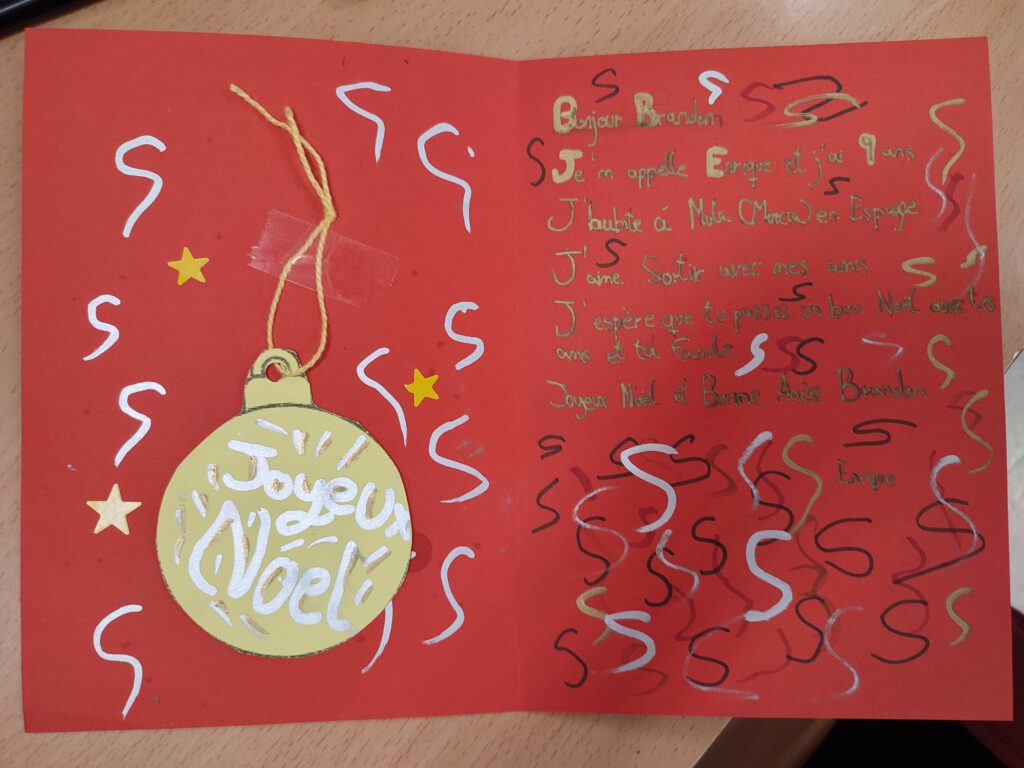 Joyeux
Noël
Bonjour Brandon
Je m appelle Enrique et j'ai 9 ans
J'habite á Mula (Murcia) en Espagne
J'aime Sortir avec mes amis
J'espère que tu passes un bon Noël avec tes
ami et ta Famille
Joyeux Noël et Bonne Anèe Brandon
Enrique